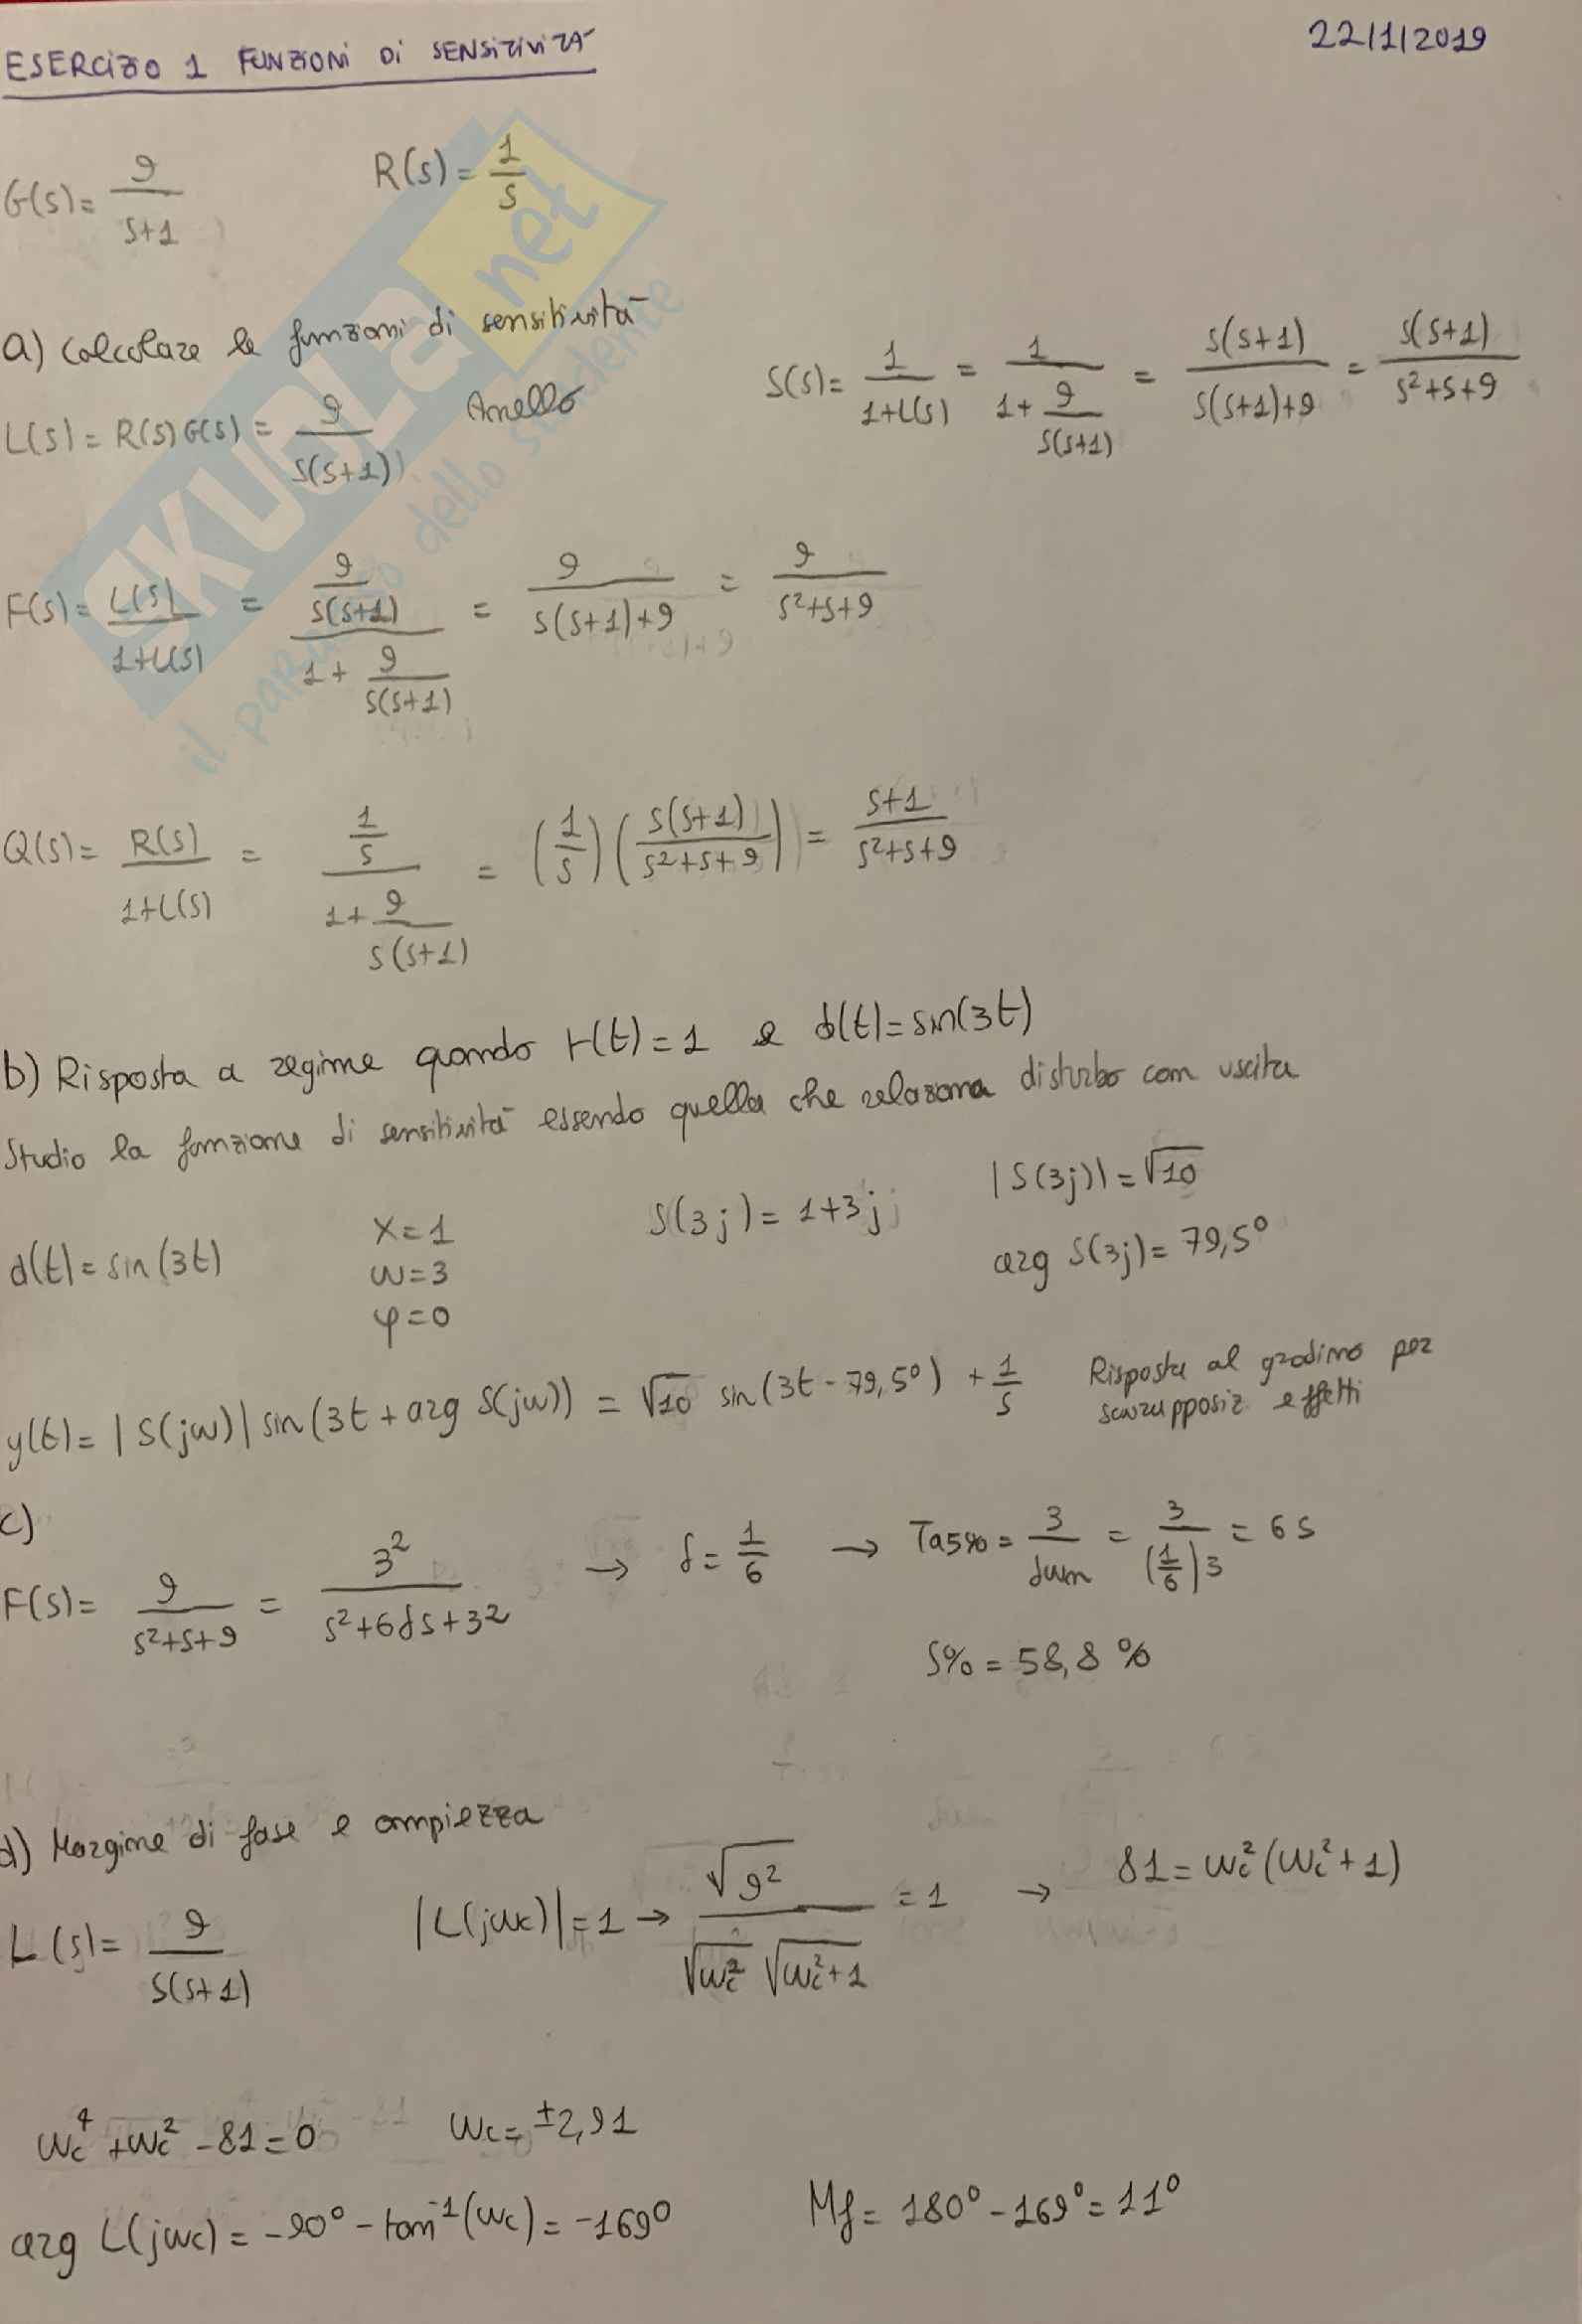 ESERCIZIO 1 FUNZIONI DI SENSITIVITÀ 22/1/2019
G(s)= 9/(s+1) R(s)= 1/s
a) Calcolare le funzioni di sensitività
L(s)= R(s)G(s)= 9/(s(s+1)) Anello S(s)= 1/(1+L(s)) = 1/(1+ 9/(s(s+1))) = s(s+1)/(s(s+1)+9) = s(s+1)/(s²+s+9)
F(s)= L(s)/(1+L(s)) = (9/(s(s+1)))/(1+ 9/(s(s+1))) = 9/(s(s+1)+9) = 9/(s²+s+9)
Q(s)= R(s)/(1+L(s)) = (1/s)/(1+ 9/(s(s+1))) = (1/s)(s(s+1)/(s²+s+9)) = (s+1)/(s²+s+9)
b) Risposta a regime quando r(t)=1 e d(t)=sin(3t)
Studio la funzione di sensitività essendo quella che relaziona disturbo con uscita
d(t)=sin(3t) X=1 ω=3 φ=0 S(3j)= 1+3j |S(3j)|=√10
arg S(3j)= 79,5°
y(t)= |S(jω)| sin(3t+arg S(jω)) = √10 sin(3t-79,5°) + 1/s Risposta al gradino per
sovrapposiz. effetti
c)
F(s)= 9/(s²+s+9) = 3²/(s²+6δs+3²) → δ= 1/6 → Ta5%= 3/(δωn) = 3/((1/6)3) = 6s
S%= 58,8 %
d) Margine di fase e ampiezza
L(s)= 9/(s(s+1)) |L(jωc)|=1 → √9²/(√ωc² √ωc²+1) =1 → 81=ωc²(ωc²+1)
ωc⁴+ωc²-81=0 ωc= ±2,91
arg L(jωc)= -90°-tan⁻¹(ωc)= -169° Mf= 180°-169°=11°
SKUOLA.net
il paradiso dello studente